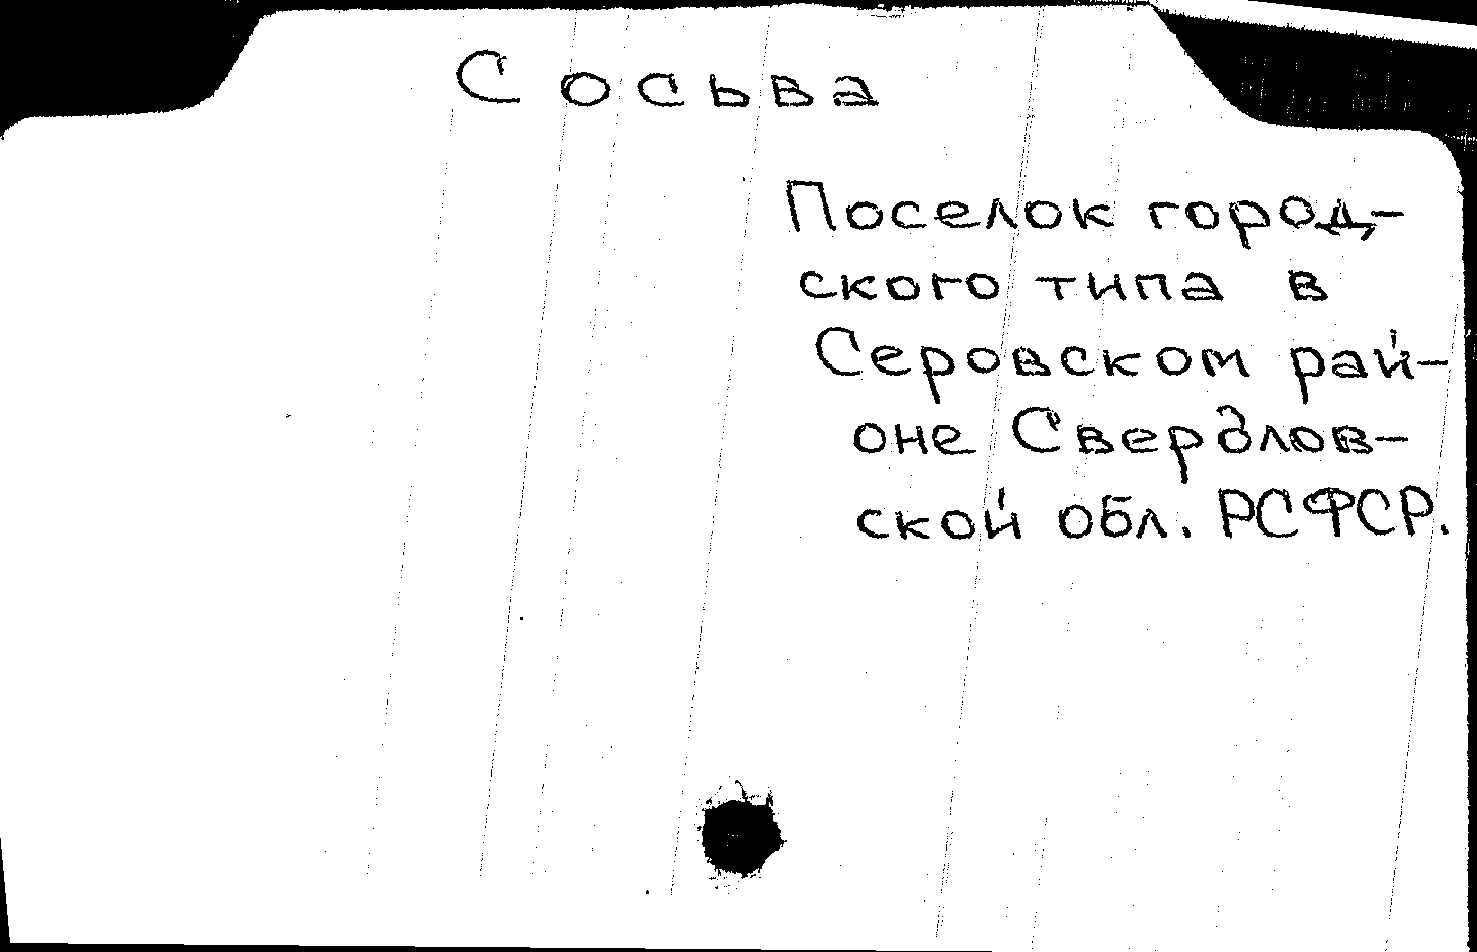 Сосьва
Поселок город-
ского типа в
Серовском рай-
оне Свердлов-
ской обл. РСФСР.